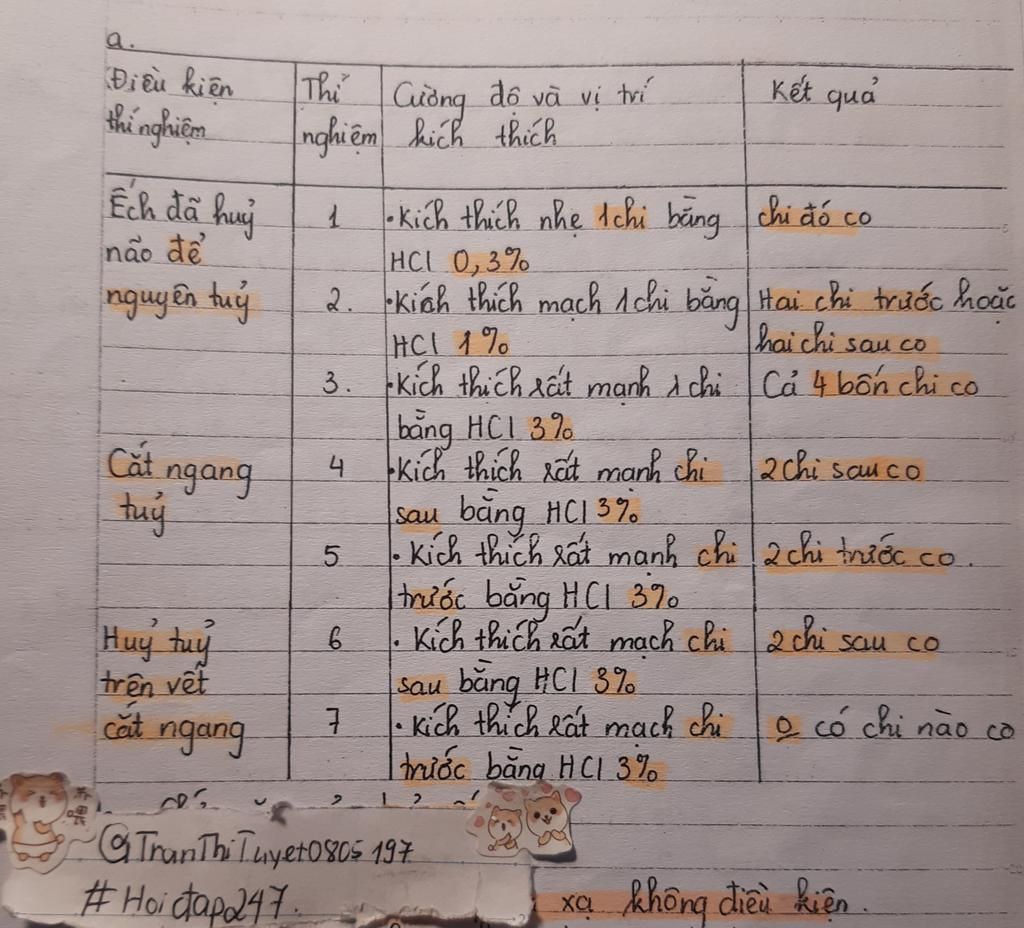 a.
Điều kiện thí nghiệm
Thí nghiệm
Cường độ và vị trí kích thích
Kết quả
Ếch đã huỷ não để nguyên tuỷ
1
• Kích thích nhẹ 1 chi bằng
HCl 0,3%
chi đó co
2.
• Kích thích mạch 1 chi bằng
HCl 1%
Hai chi trước hoặc
hai chi sau co
3.
• Kích thích rất mạnh 1 chi
bằng HCl 3%
Cả 4 bốn chi co
Cắt ngang tuỷ
4
• Kích thích rất mạnh chi
sau bằng HCl 3%
2 chi sau co
5
• Kích thích rất mạnh chi
trước bằng HCl 3%
2 chi trước co.
Huỷ tuỷ trên vết cắt ngang
6
• Kích thích rất mạch chi
sau bằng HCl 3%
2 chi sau co
7
• Kích thích rất mạch chi
trước bằng HCl 3%
0 có chi nào co
@TranThiTuyet0805197
#Hoiđap247.
xạ không điều kiện.